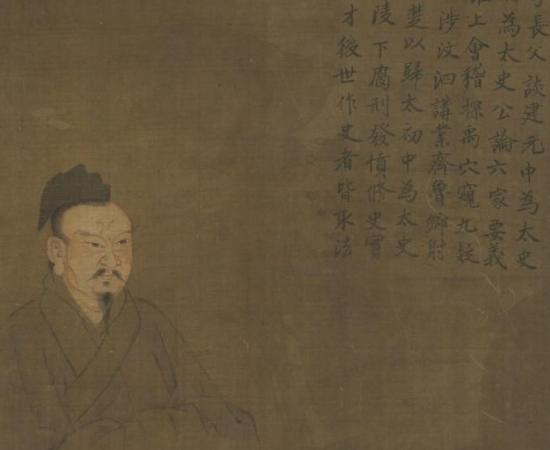 長父談建元中為太史
為太史公論六家要義
上會稽探禹穴窺九疑
涉汶泗講業齊魯鄉射
楚以歸太初中為太史
陵下腐刑發憤脩史實
才後世作史者皆取法